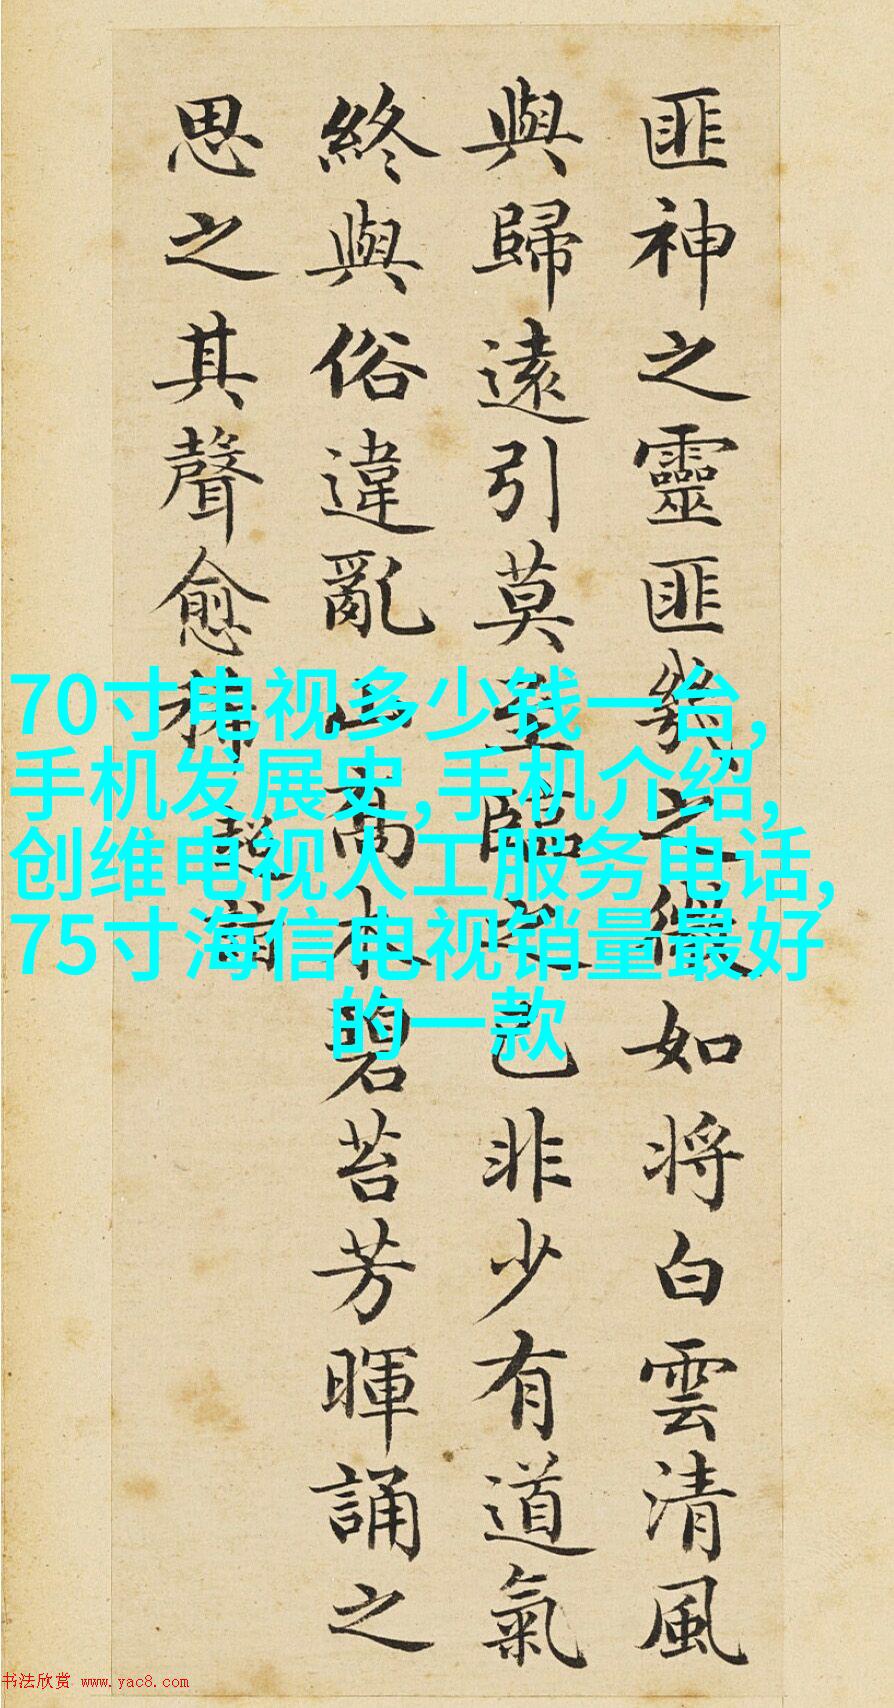 匪神之靈匪幾之微如将白雲清風
與歸遠引莫至臨之已非少有道氣
終與俗違亂山喬木碧苔芳暉誦之
思之其聲愈稀 超詣
70寸电视多少钱一台,
手机发展史,手机介绍,
创维电视人工服务电话,
75寸海信电视销量最好
的一款
书法欣赏 www.yac8.com